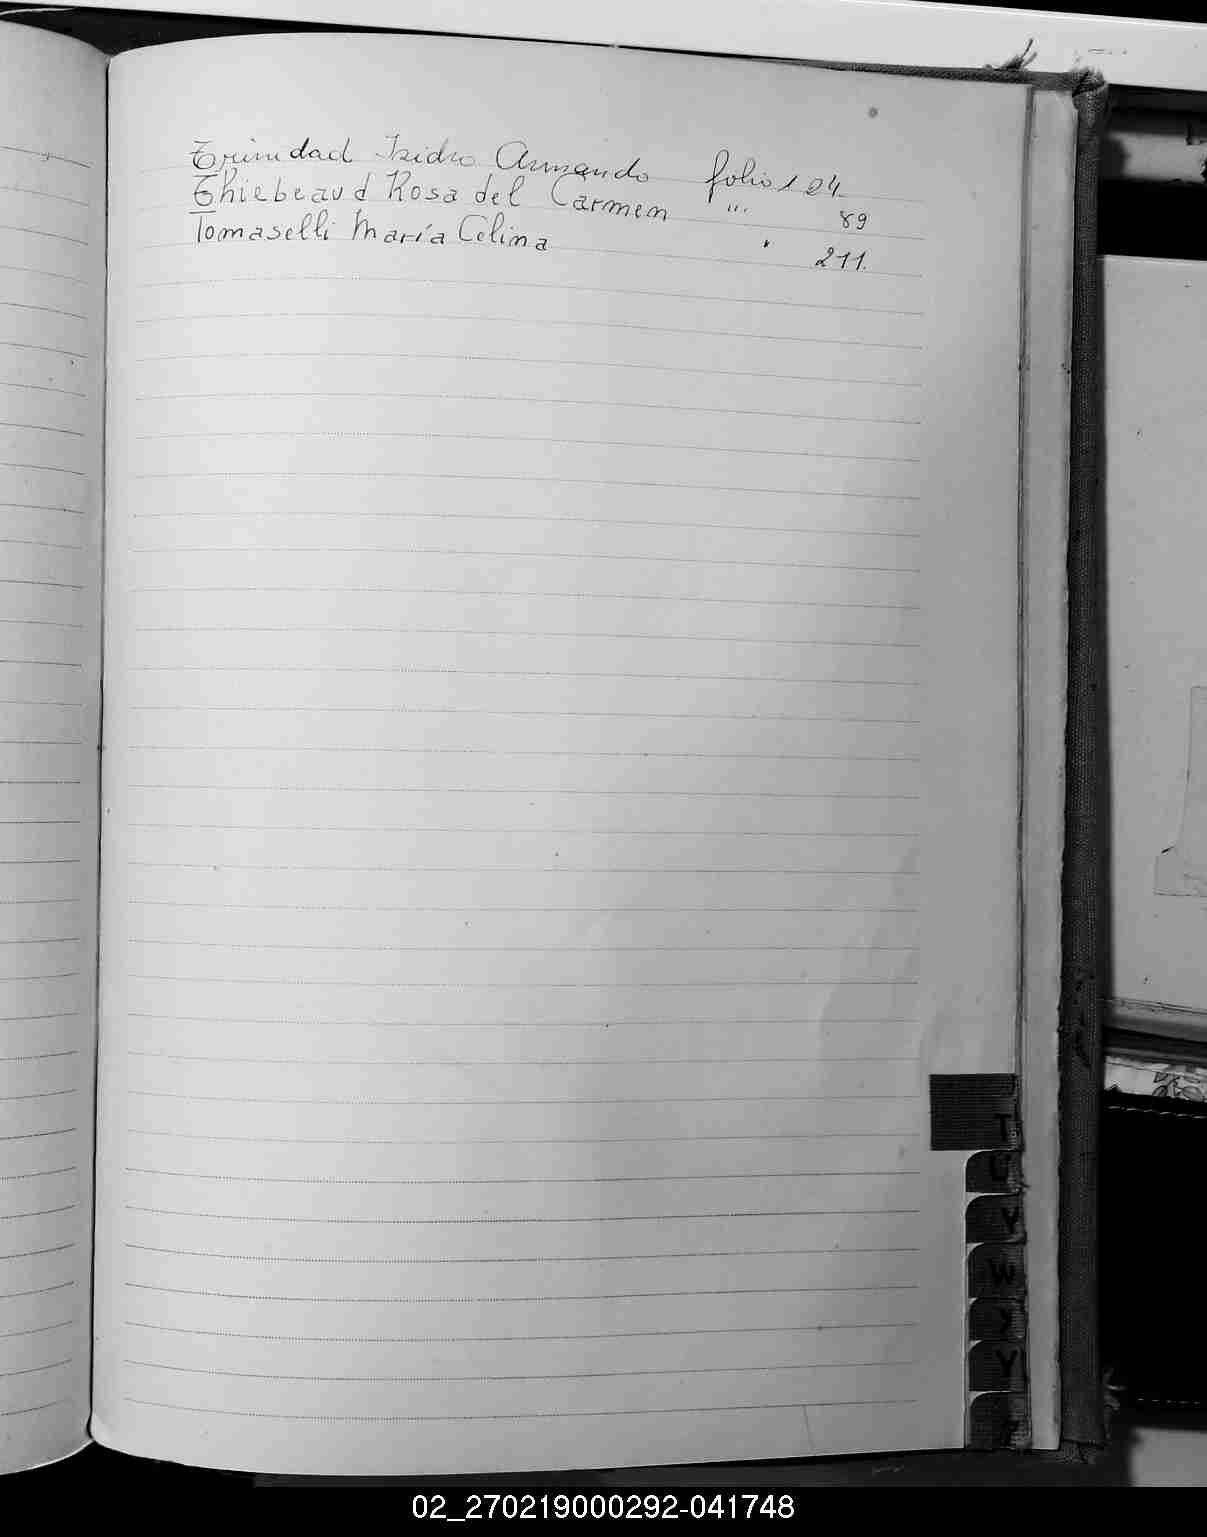 Trinidad Isidro Armando folio 124
Thiebeaud Rosa del Carmen " 89
Tomaselli María Celina " 211.
T
U
V
W
X
Y
Z
02_270219000292-041748